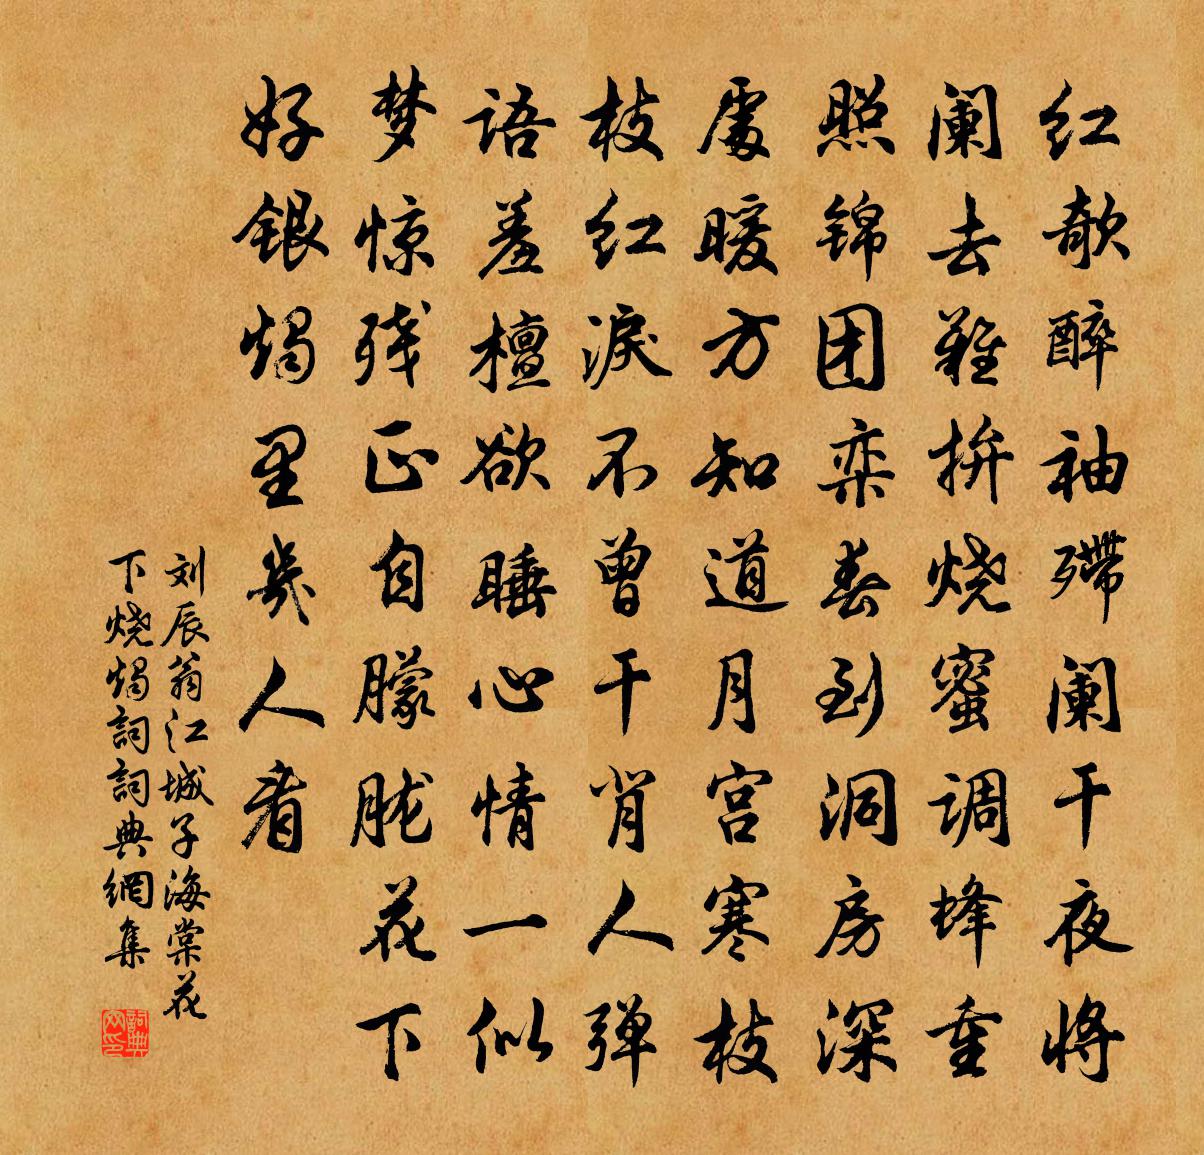 红欹醉袖殢阑干夜将
阑去難拚烧蜜调蜂重
照锦团栾春到洞房深
處暖方知道月宫寒枝
枝红淚不曾干背人弹
语羞檀欲睡心情一似
梦惊残正自朦胧花下
好银燭里幾人看
刘辰翁江城子海棠花
下烧燭詞詞典網集
詞典
网印